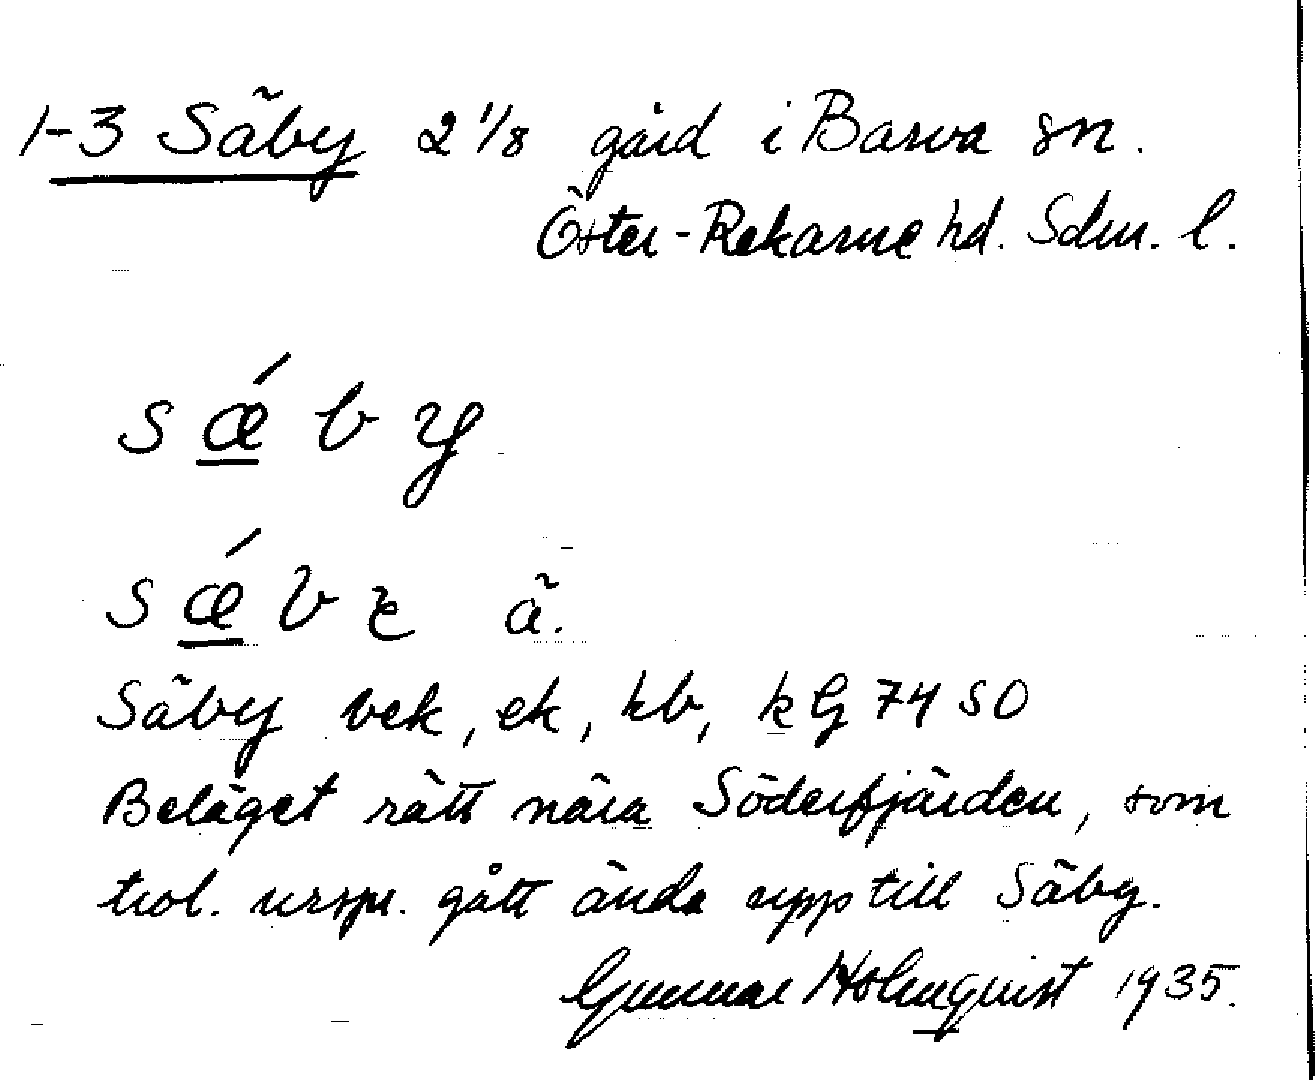 1-3 Säby 2 1/8 gård i Barva sn.
Öster-Rekarne hd. Sdm. l.
sǽby
sǽbe ä.
Säby bek, ek, hb, kG 74 SO
Beläget rätt nära Söderfjärden, som
trol. urspr. gått ända upp till Säby.
Gunnar Holmquist 1935.